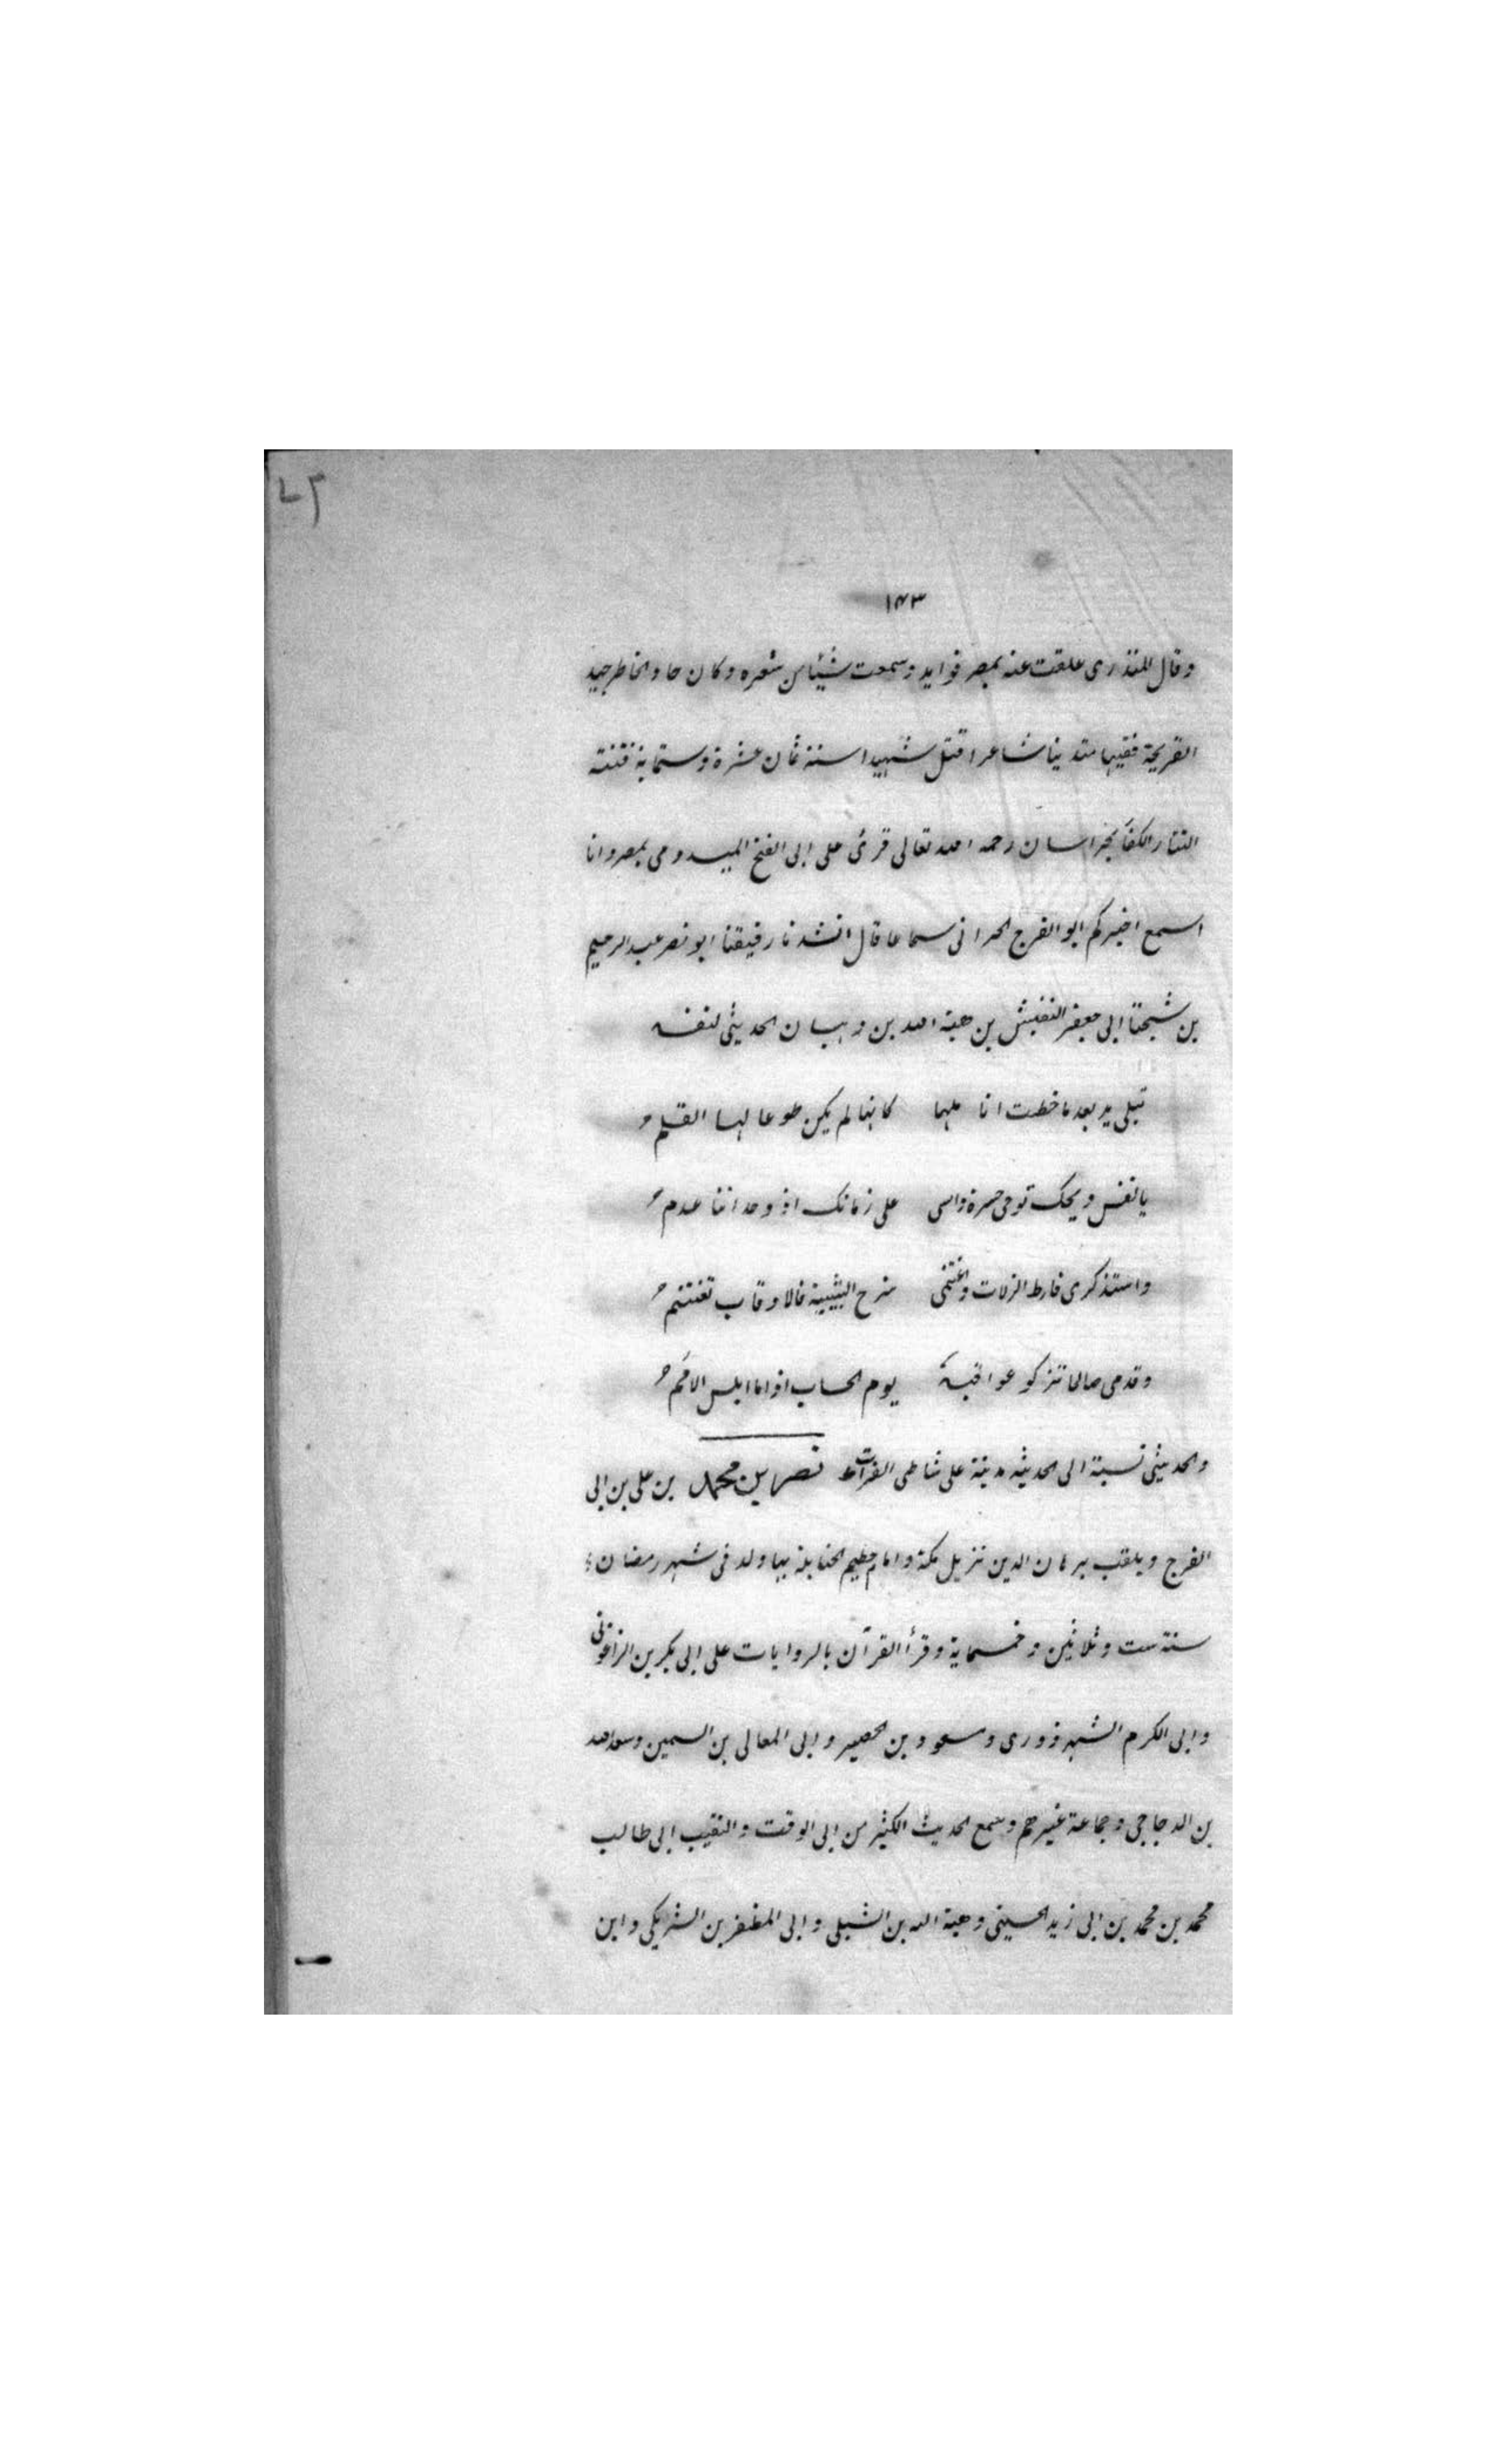 ٧٢
١٤٣
وقال المنذرى علقت عنه بمصر فوايد وسمعت شيئا من شعره وكان حاد الخاطر جيد
القريحة فقيها متدينا شاعرا قتل شهيدا سنة ثمان عشرة وستماية فتنته
التتار الكفار بخراسان رحمه الله تعالى قرئ على ابى الفتح الميدومى بمصر وانا
اسمع اخبركم ابو الفرج الحرانى سماعا قال انشدنا رفيقنا ابو نصر عبد الرحيم
بن شيخنا ابى جعفر النفيس بن هبة الله بن وهبان الحديثى لنفسه
تبلى يد بعد ما خطت انا ملها كانها لم يكن طوعا لها القلم
يا نفس ويحك نوحى حسرة واسى على زمانك اذ وجداننا عدم
واستذكرى فارط الزلات واغتنمى شرخ الشبيبة فالاوقات تغتنم
وقدمى صالحا تزكو عواقبه يوم الحساب اذا ما ابلس الامم
والحديثى نسبة الى الحديثه مدينة على شاطى الفرات نصر بن محمد بن على بن ابى
الفرج ويلقب ببرهان الدين نزيل مكة وامام حطيم الحنابلة بها ولد فى شهر رمضان
سنة ست وثلاثين وخمسماية وقرأ القرآن بالروايات على ابى بكر بن الزاغونى
وابى الكرم الشهرزورى ومسعود بن الحصير وابى المعالى بن السمين وسعد الله
بن الدجاجى وجماعة غيرهم وسمع الحديث الكثير من ابى الوقت والنقيب ابى طالب
محمد بن محمد بن ابى زيد الحسينى وهبة الله بن الشبلى وابى المظفر بن التريكى وابن